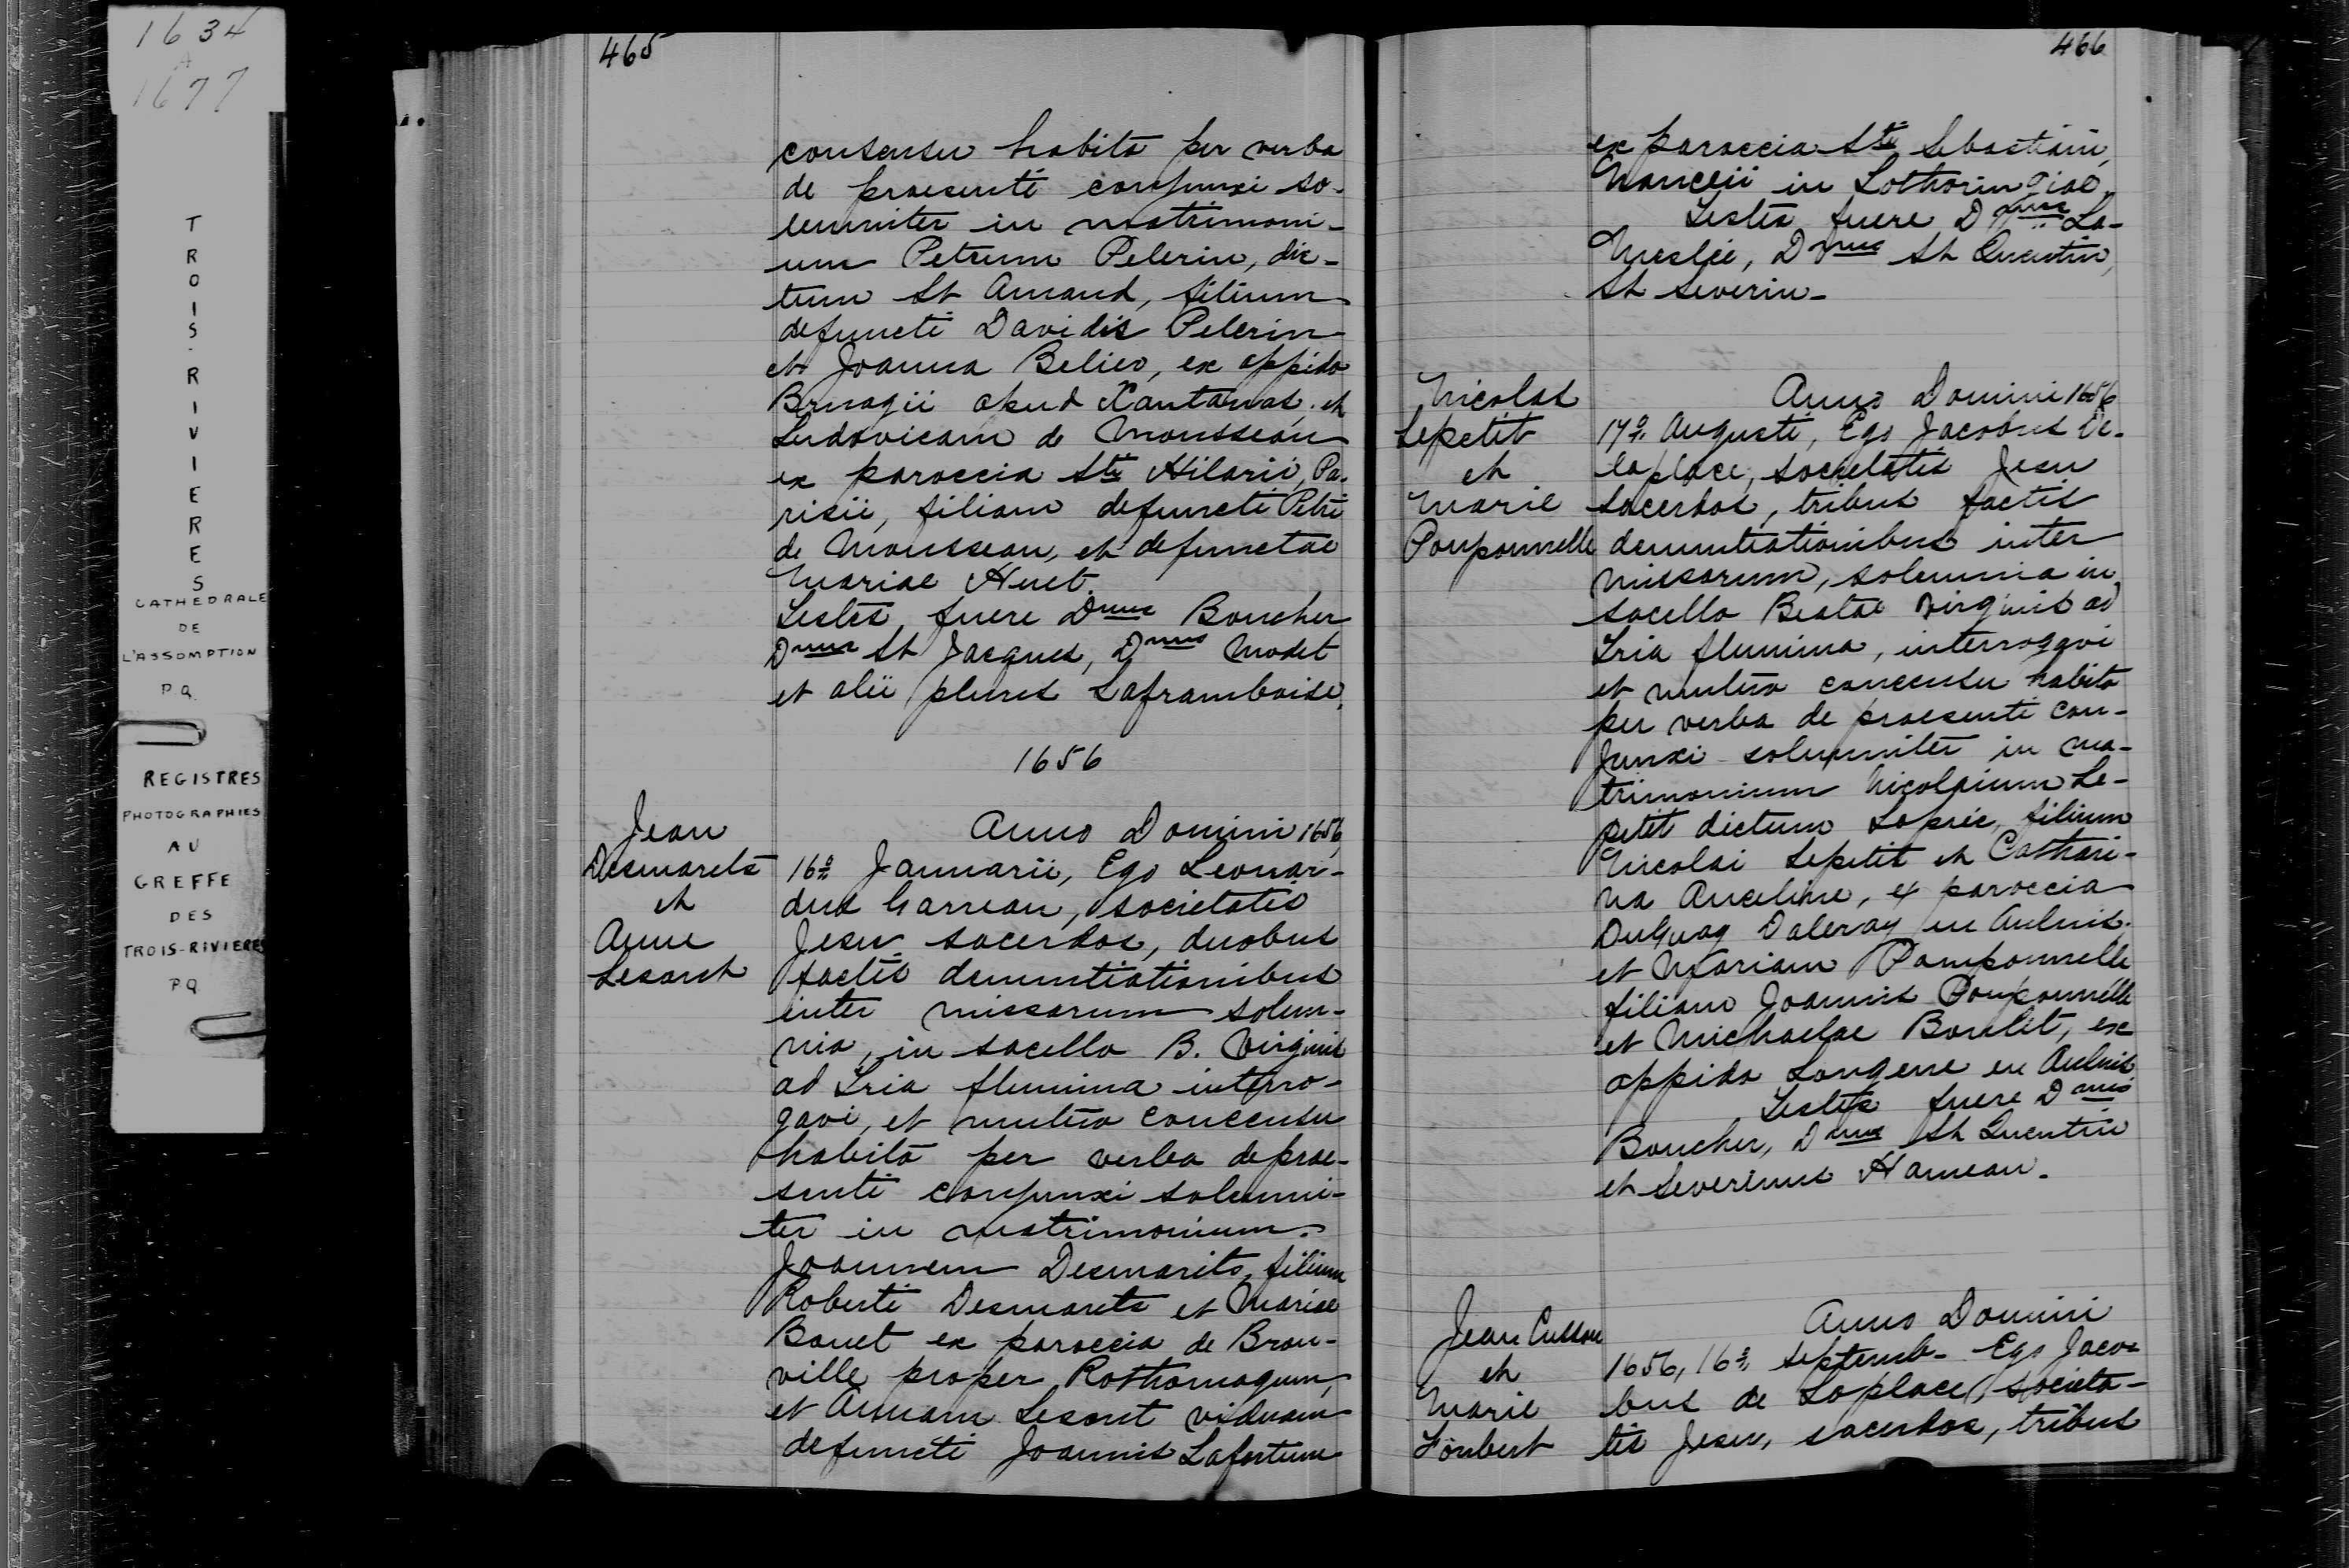 1634
A
1677
TROIS-RIVIERES
CATHEDRALE
DE
L'ASSOMPTION
P.Q.
REGISTRES
PHOTOGRAPHIES
AU
GREFFE
DES
TROIS-RIVIERES
PQ
465
consensu habito per verba
de praesenti conjunxi so-
lemniter in matrimoni-
um Petrum Pelerin, dic-
tum St Amand, filium
defuncti Davidis Pelerin
et Joanna Belier, ex oppido
Bruagii apud Xantanas. et
Ludovicam de Mousseau
ex paroccia Sti Hilarii, Pa-
risii, filiam defuncti Petri
de Mousseau, et defunctae
Mariae Huet.
Testes fuere Dnus Boucher
Dnus St Jacques, Dnus Modet
et alii plures Laframboise.
1656
Jean
Desmarets
et
Anne
Lesaret
Anno Domini 1656
16a Januarii, Ego Leonar-
dus Garreau, societatis
Jesu sacerdos, duobus
factis denuntiationibus
inter missarum solem-
nia, in sacello B. Virginis
ad Tria flumina interro-
gavi, et mutuo concensu
habito per verba de prae-
senti conjunxi solemni-
ter in matrimonium.
Joannem Desmarits, filium
Roberti Desmarets et Mariae
Bouet ex paroccia de Bron-
ville proper Rothomagum,
et Annam Lesont viduam
defuncti Joannis Lafortune
466
ex paroccia Sti Sebastiani,
Nanceii in Lothoringiae.
Testes fuere Dnus La-
Meslée, Dnus St Quentin,
St Severin-
Nicolas
Lepetit
et
Marie
Pouponnelle
Anno Domini 1656
17a Augusti, Ego Jacobus De-
laplace, societatis Jesu
sacerdos, tribus factis
denuntiationibus inter
missarum, solemnia in
sacello Beatae Virginis ad
Tria flumina, interrogavi
et mutuo concensu habito
per verba de praesenti con-
junxi solemniter in ma-
trimonium Nicolaium Le-
petit dictum Laprée, filium
Nicolai Lepetit et Cathari-
na Anceline, ex paroccia
DuGuay Daleray en Aulnis.
et Mariam Pomponnelle
filiam Joannis Pouponnelle
et Michaelae Boulet, ex
oppido Longene en Aulnis.
Testes fuere Dnus
Boucher, Dnus St Quentin
et Severinus Hameau.
Jean Cusson
et
Marie
Foubert
Anno Domini
1656, 16a Septemb- Ego Jaco-
bus de Laplace, societa-
tis Jesu, sacerdos, tribus